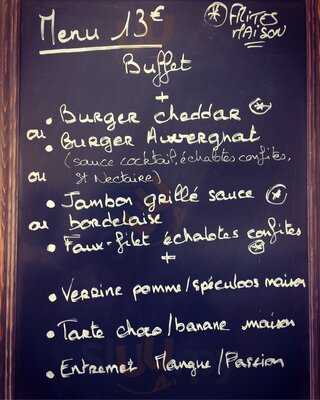 Menu 13€
* FRITES
MAISON
Buffet
+
• Burger cheddar *
ou
• Burger Auvergnat
(sauce cocktail, échalotes confites,
St Nectaire)
ou
• Jambon grillé sauce *
bordelaise
ou
• Faux-filet échalotes confites
*
+
• Verrine pomme/spéculoos maison
• Tarte choco/banane maison
• Entremet Mangue/Passion